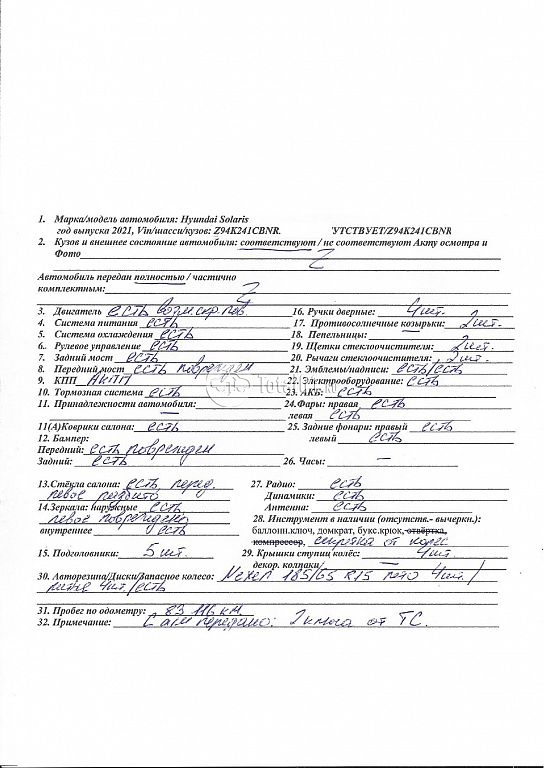 1. Марка/модель автомобиля: Hyundai Solaris
год выпуска 2021, Vin/шасси/кузов: Z94K241CBNR. 'УТСТВУЕТ/Z94K241CBNR
2. Кузов и внешнее состояние автомобиля: соответствуют / не соответствуют Акту осмотра и
Фото Z
Автомобиль передан полностью / частично
комплектным: Z
3. Двигатель есть возм. скр. пов. 16. Ручки дверные: 4шт.
4. Система питания есть 17. Противосолнечные козырьки: 2шт.
5. Система охлаждения есть 18. Пепельницы: —
6. Рулевое управление есть 19. Щетки стеклоочистителя: 2шт.
7. Задний мост есть 20. Рычаги стеклоочистителя: 2шт.
8. Передний мост есть поврежден 21. Эмблемы/надписи: есть/есть
9. КПП АКПП 22. Электрооборудование: есть
10. Тормозная система есть 23. АКБ: есть
11. Принадлежности автомобиля: 24. Фары: правая есть
— левая есть
11(А)Коврики салона: есть 25. Задние фонари: правый есть
12. Бампер: левый есть
Передний: есть поврежден
Задний: есть 26. Часы: —
13.Стёкла салона: есть, перед. 27. Радио: есть
левое разбито Динамики: есть
14.Зеркала: наружные есть, Антенна: есть
левое повреждено 28. Инструмент в наличии (отсутств.- вычеркн.):
внутреннее есть баллонн.ключ, домкрат, букс.крюк, отвёртка,
компрессор,
15. Подголовники: 5 шт. 29. Крышки ступиц колёс: 4шт.
декор. колпаки/ —
30. Авторезина/Диски/Запасное колесо: Nexen 185/65 R15 лето 4шт/
литые 4шт/есть
31. Пробег по одометру: 83 116 км.
32. Примечание: С а/м передано: 2 ключа от ТС.